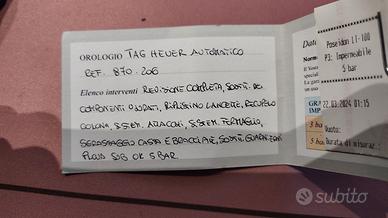 OROLOGIO TAG HEUER AUTOMATICO
REF. 870.206
Elenco interventi REVISIONE COMPLETA, SOSTIT. DEI
COMPONENTI USURATI, RIPRISTINO LANCETTE, RECUPERO
CORONA, SISTEM. ATTACCHI, SISTEM. FERMAGLIO,
SGRASSAGGIO CASSA E BRACCIALE, SOSTIT. GUARNIZIONI
PROVA SUB OK 5 BAR.
Date
Norme
If You
special
La gara
GRA
IMP
3 ba
5 ba
Poseidon II-100
P3: Impermeabile
5 bar
22.03.2024 01:15
Vuoto:
Durata di misura:
subito